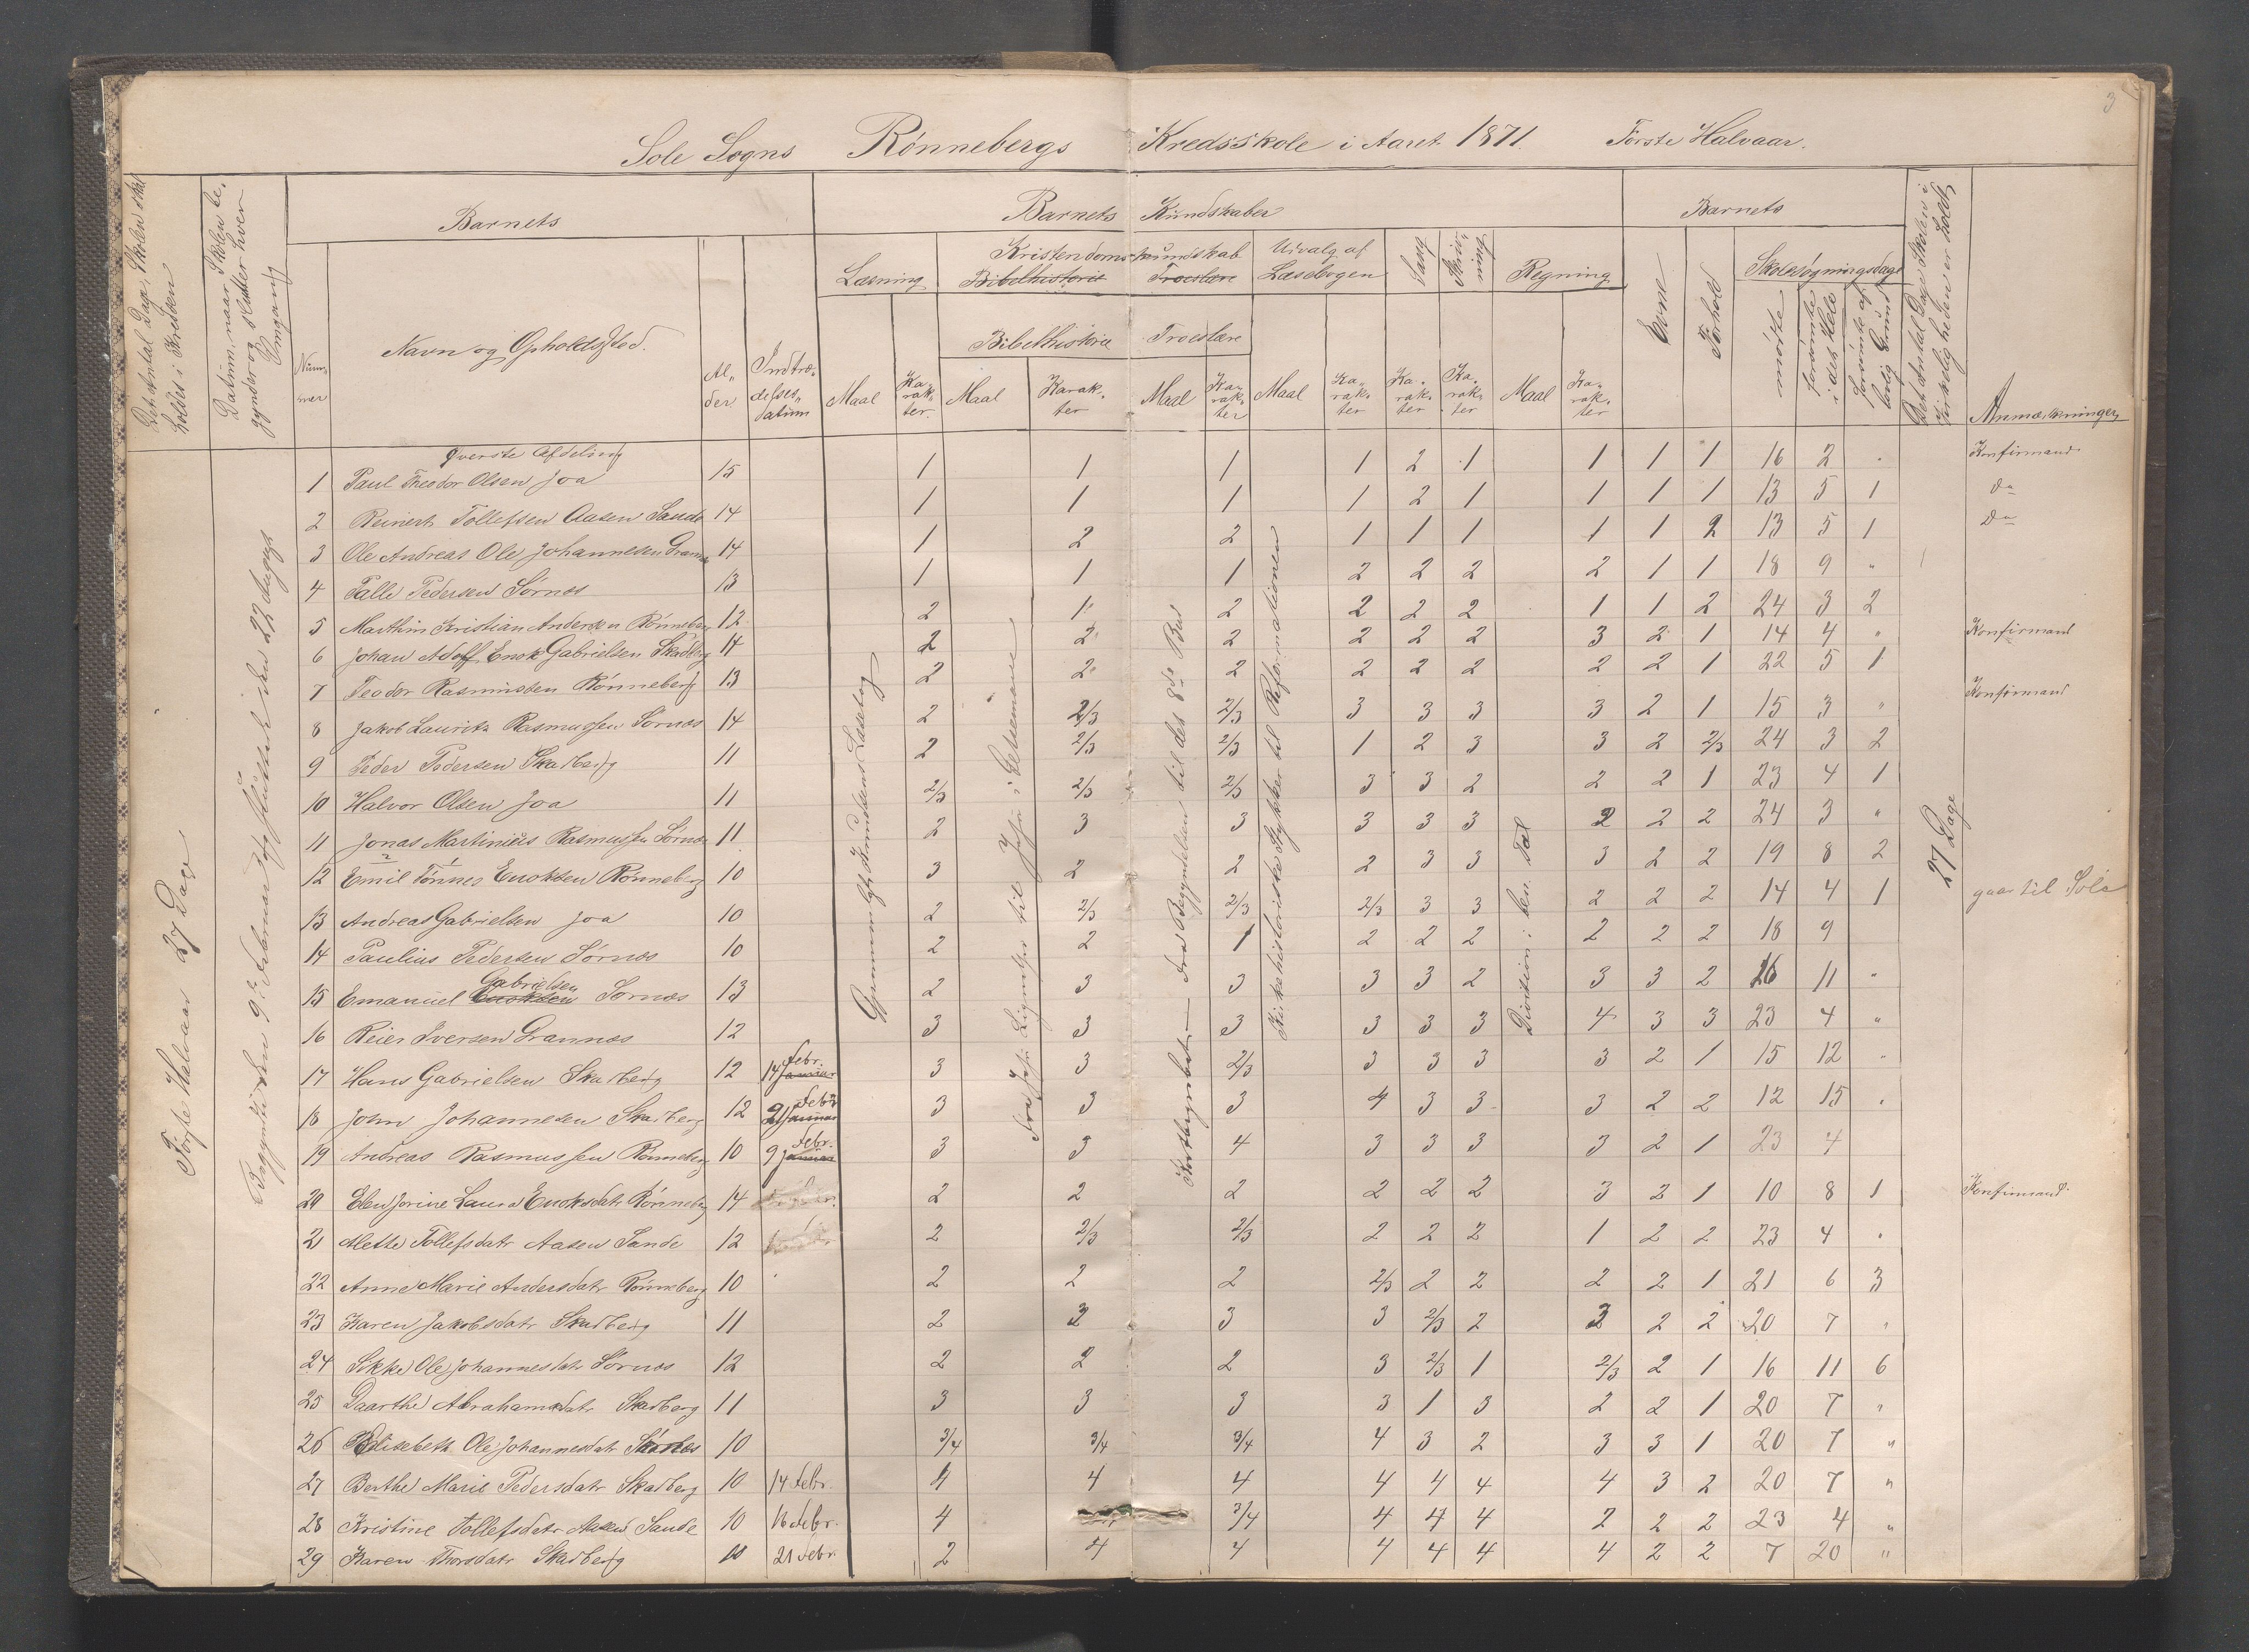 3
Sole Sogns Rönnebergs Kredsskole i Aaret 1871. Første Halvaar.
Det Antal Dage, Skolen skal holdes i Kredsen
Datum, naar Skolen begynder og slutter hver Omgang
Barnets
Barnets Kundskaber
Barnets
Det Antal Dage Skolen i Virkeligheden er holdt
Anmærkninger
Nummer
Navn og Opholdssted.
Alder
Indtrædelsesdatum
Læsning
Kristendomskundskab
Bibelhistorie Troeslære
Udvalg af Læsebogen
Sang
Skrivning
Regning
Evne
Forhold
Skolesøgningsdage
Bibelhistorie Troeslære
Maal Karakter Maal Karakter Maal Karakter Maal Karakter Karakter Karakter Maal Karakter
mødte
forsømte i det Hele
forsømte af lovlig Grund
Første Halvaar 27 Dage
Begyndte den 9de Februar og sluttede den 22
Fra Jesu Lignelser til Jesus i Getsemane
Fra Begyndelsen til det 8de Bud
Kirkehistoriske Stykker til Reformationen
Division i ben. Tal
27 Dage
Øverste Afdeling
1 Paul Theodor Olsen Joa 15 1 1 1 1 2 1 1 1 1 16 2 . Konfirmand
2 Reinert Tollefsen Aasen Sande 14 1 1 1 1 2 1 1 1 1 13 5 1 Do
3 Ole Andreas Ole Johannesen 14 1 2 2 1 1 1 1 1 2 13 5 1 Do
4 Talle Pedersen Sörnæs 13 1 1 1 2 2 2 2 1 1 18 9 "
5 Marthin Kristian Andersen Rönneberg 12 2 1 2 2 2 2 1 1 2 24 3 2
6 Johan Adolf Enok Gabrielsen Skadberg 14 2 2 2 2 2 2 3 2 1 14 4 " Konfirmand
7 Teodor Rasmussen Rönneberg 13 2 2 2 2 2 2 2 2 1 22 5 1
8 Jakob Lauritz Rasmussen Sörnæs 14 2 2/3 2/3 3 3 3 3 2 1 15 3 " Konfirmand
9 Peder Pedersen Skadberg 11 2 2/3 2/3 1 2 3 3 2 2/3 24 3 2
10 Halvor Olsen Joa 11 2/3 2/3 2/3 3 3 2 2 2 1 23 4 1
11 Jonas Martinius Rasmussen Sörnæs 11 2 3 3 3 3 3 2 2 2 24 3 "
12 Emil Tönnes Enoksen Rönneberg 10 3 2 2 2 3 3 3 2 2 19 8 2
13 Andreas Gabrielsen Joa 10 2 2/3 2/3 2/3 3 3 2 2 2 14 4 1 gaar til Sole
14 Paulius Pedersen Sörnæs 10 2 2 1 2 2 2 2 2 2 18 9
15 Emanuel Enoksen Gabrielsen Sörnæs 13 2 3 3 3 3 2 3 3 2 16 11 "
16 Reier Iversen Grannæs 12 3 3 3 3 3 3 4 3 3 23 4 "
17 Hans Gabrielsen Skadberg 12 14 Januar Febr. 3 3 2/3 3 3 3 3 2 1 15 12 "
18 John Johannesen Skadberg 12 21 Januar Febr 3 3 3 4 3 3 3 2 2 12 15 .
19 Andreas Rasmussen Rönneberg 10 9 Januar Febr. 3 3 4 3 3 3 3 2 1 23 4
20 Elen Jorine Laura Enoksdatr Rönneberg 14 2 2 2 2 2 2 3 2 1 10 8 1 Konfirmand.
21 Mette Tollefsdatr Aasen Sande 12 2 2/3 2/3 2 2 2 1 2 2 23 4 .
22 Anne Marie Andersdatr Rönneberg 10 2 2 2 2/3 2 2 2 2 1 21 6 3
23 Karen Jakobsdatr Skadberg 11 2 3 3 3 2/3 2 3 2 2 20 7 "
24 Sikke Ole Johannesdatr Sörnæs 12 2 2 2 3 2/3 1 2/3 2 1 16 11 6
25 Daarthe Abrahamsdatr Skadberg 11 3 3 3 3 1 3 2 2 1 20 7 "
26 Elisebeth Ole Johannesdatr Sörnæs 10 3/4 3/4 3/4 4 3 2 3 3 1 20 7 "
27 Berthe Marie Pedersdatr Skadberg 10 14 Febr. 4 4 4 4 4 4 4 3 2 20 7 "
28 Kristine Tollefsdatr Aasen Sande 10 16 Febr. 4 3/4 4 4 4 2 2 2 23 4 "
29 Karen Thorsdatr Skadberg 10 21 Febr. 2 4 4 4 4 4 4 2 2 7 20 "